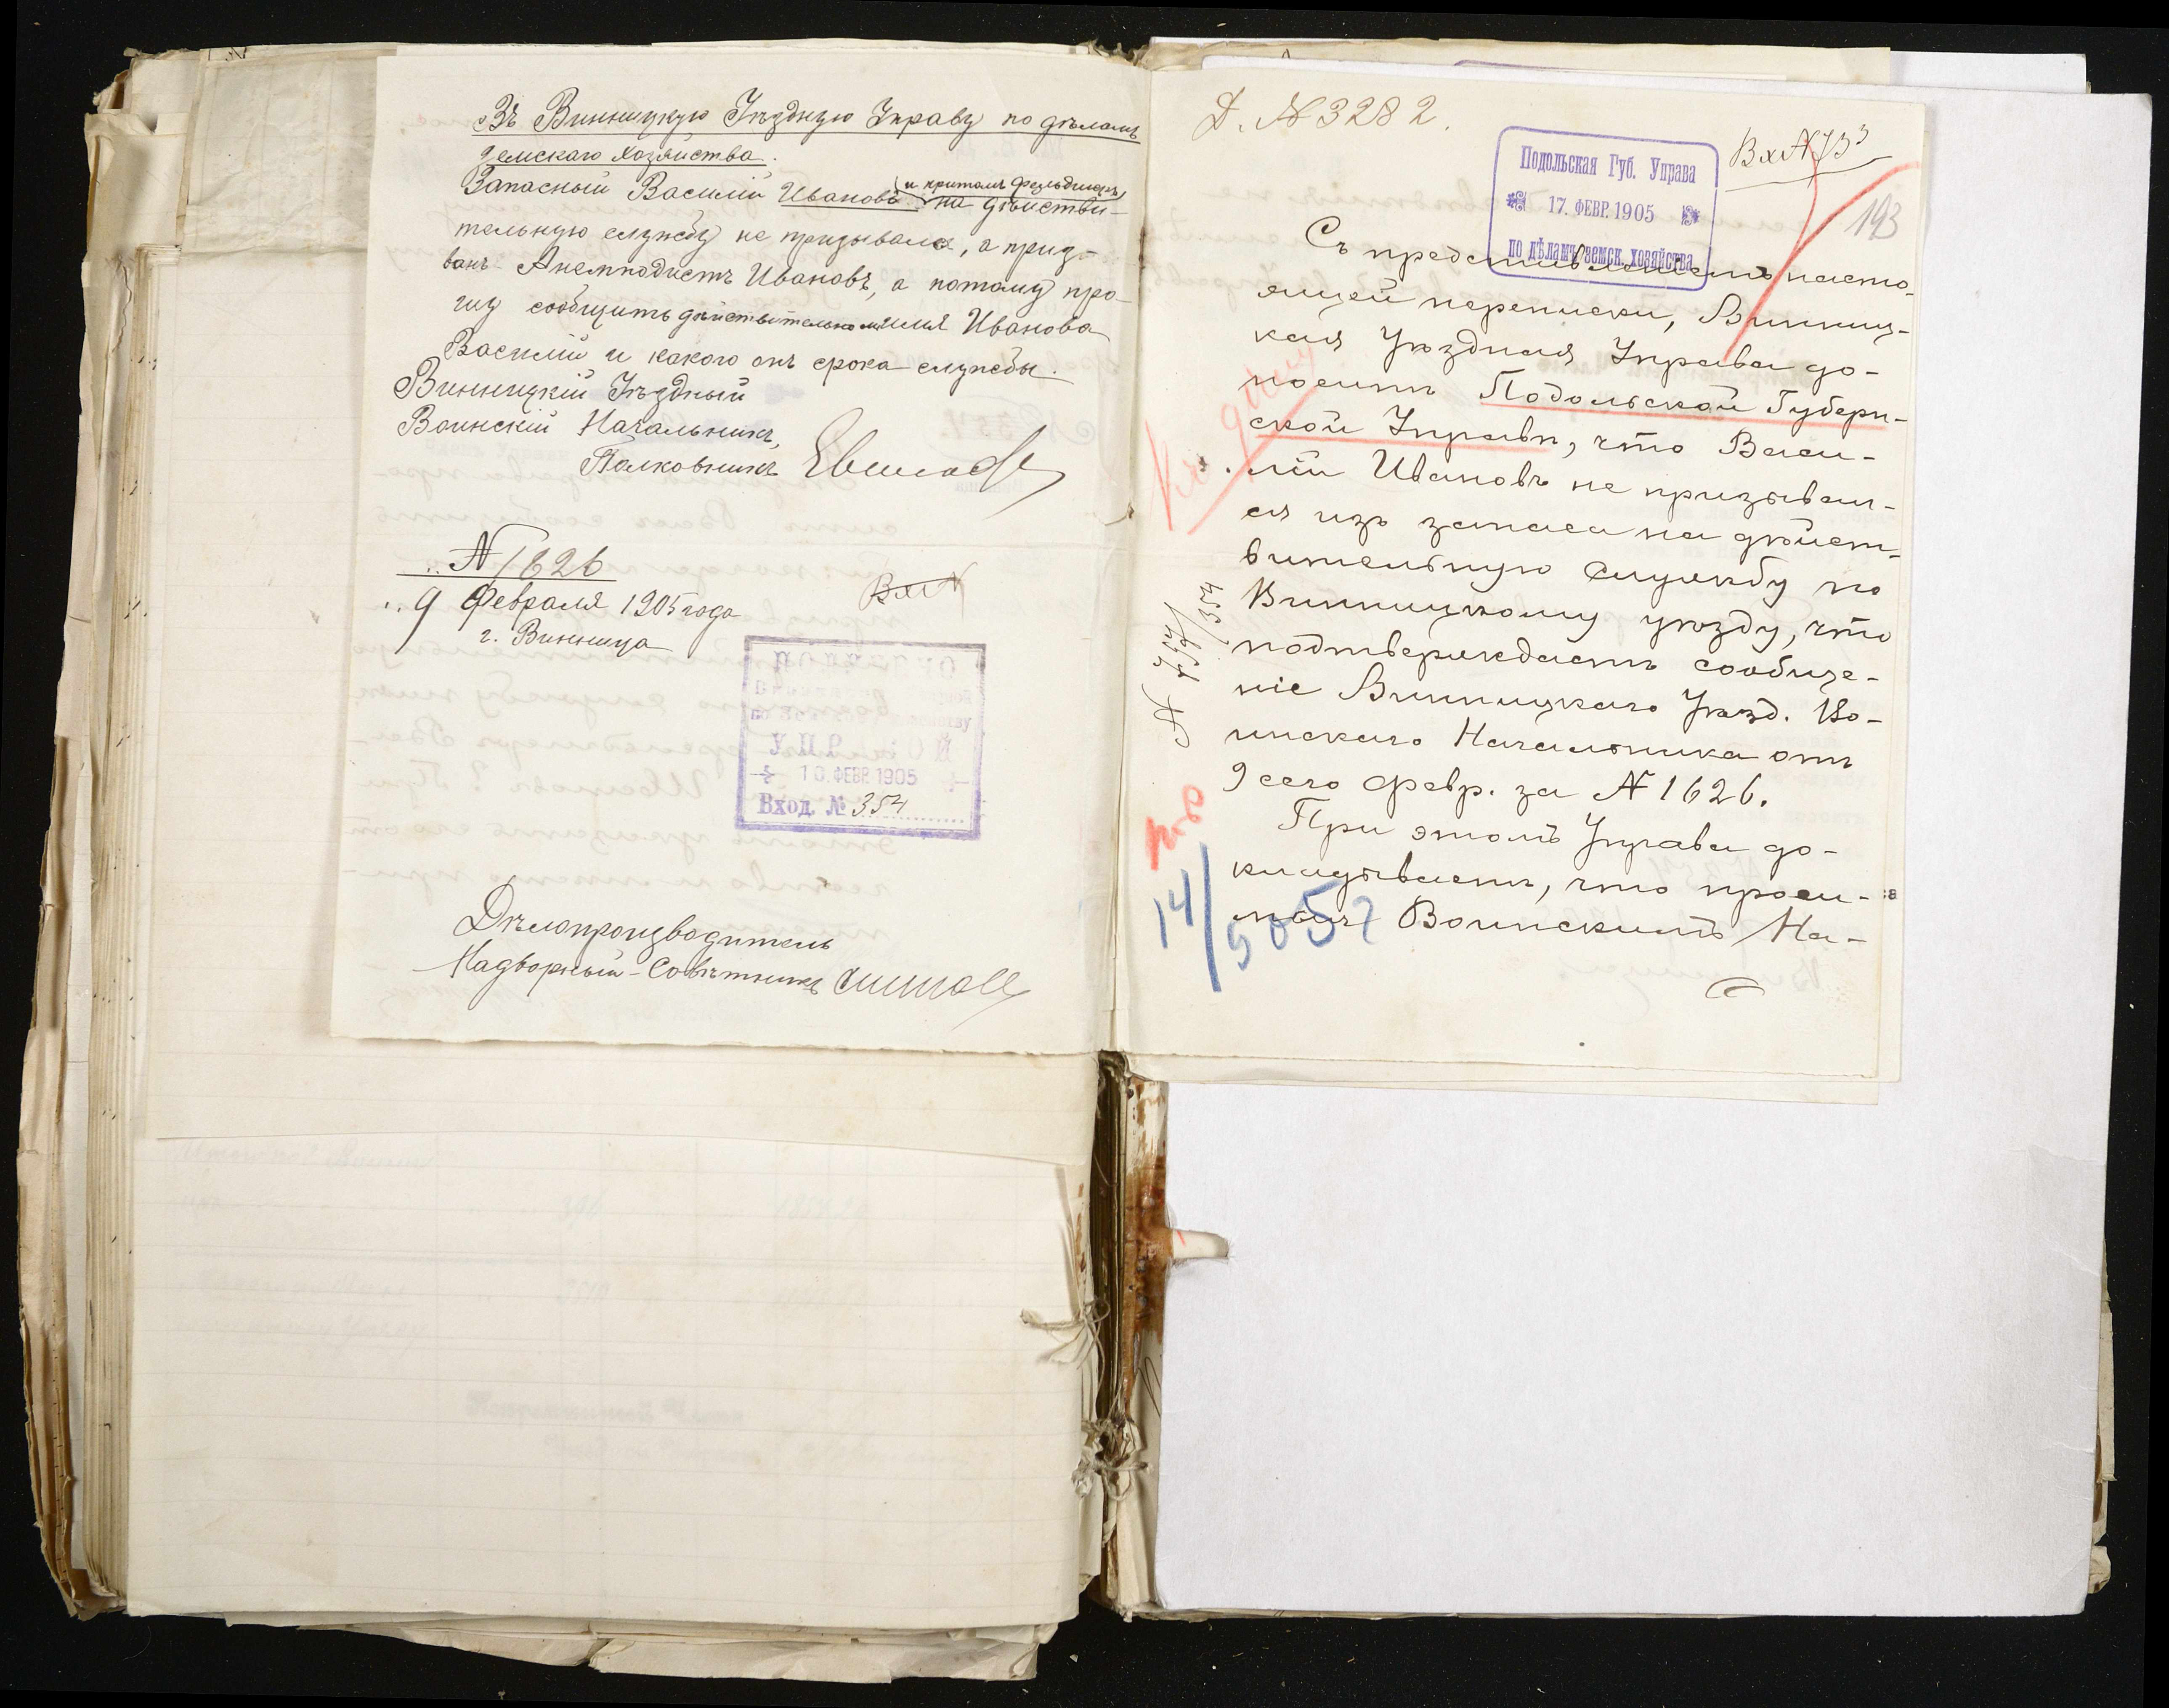 Въ Винницкую Уѣздную Управу по дѣламъ
Земскаго Хозяйства.
и притомъ фельдшеръ
Запасный Василій Ивановъ на дѣйстви-
тельную службу не призывался, а приз-
ванъ Анемподистъ Ивановъ, а потому про-
шу сообщить дѣйствительно ли имя Иванова
Василій и какого онъ срока службы.
Винницкій Уѣздный
Воинскій Начальникъ,
Полковникъ
№ 1626
„9 Февраля 1905 года
г. Винница
Вх №
УПРАВОЙ
10. ФЕВР. 1905
Вход. № 354
Дѣлопроизводитель
Надворный-Совѣтникъ
Д. № 3282.
Подольская Губ. Управа
17. ФЕВР. 1905
по дѣламъ земск. хозяйства
193
Съ представленіемъ насто-
ящей переписки, Винниц-
кая Уѣздная Управа до-
носитъ Подольской Губерн-
ской Управѣ, что Васи-
лій Ивановъ не призывал-
ся изъ запаса на дѣйст-
вительную службу по
Винницкому уѣзду, что
подтверждаетъ сообще-
ніе Винницкаго Уѣзд. Во-
инскаго Начальника отъ
9 сего февр. за № 1626.
При этомъ Управа до-
кладываетъ, что проси-
мыхъ Воинскимъ На-
Къ дѣлу
14/5057